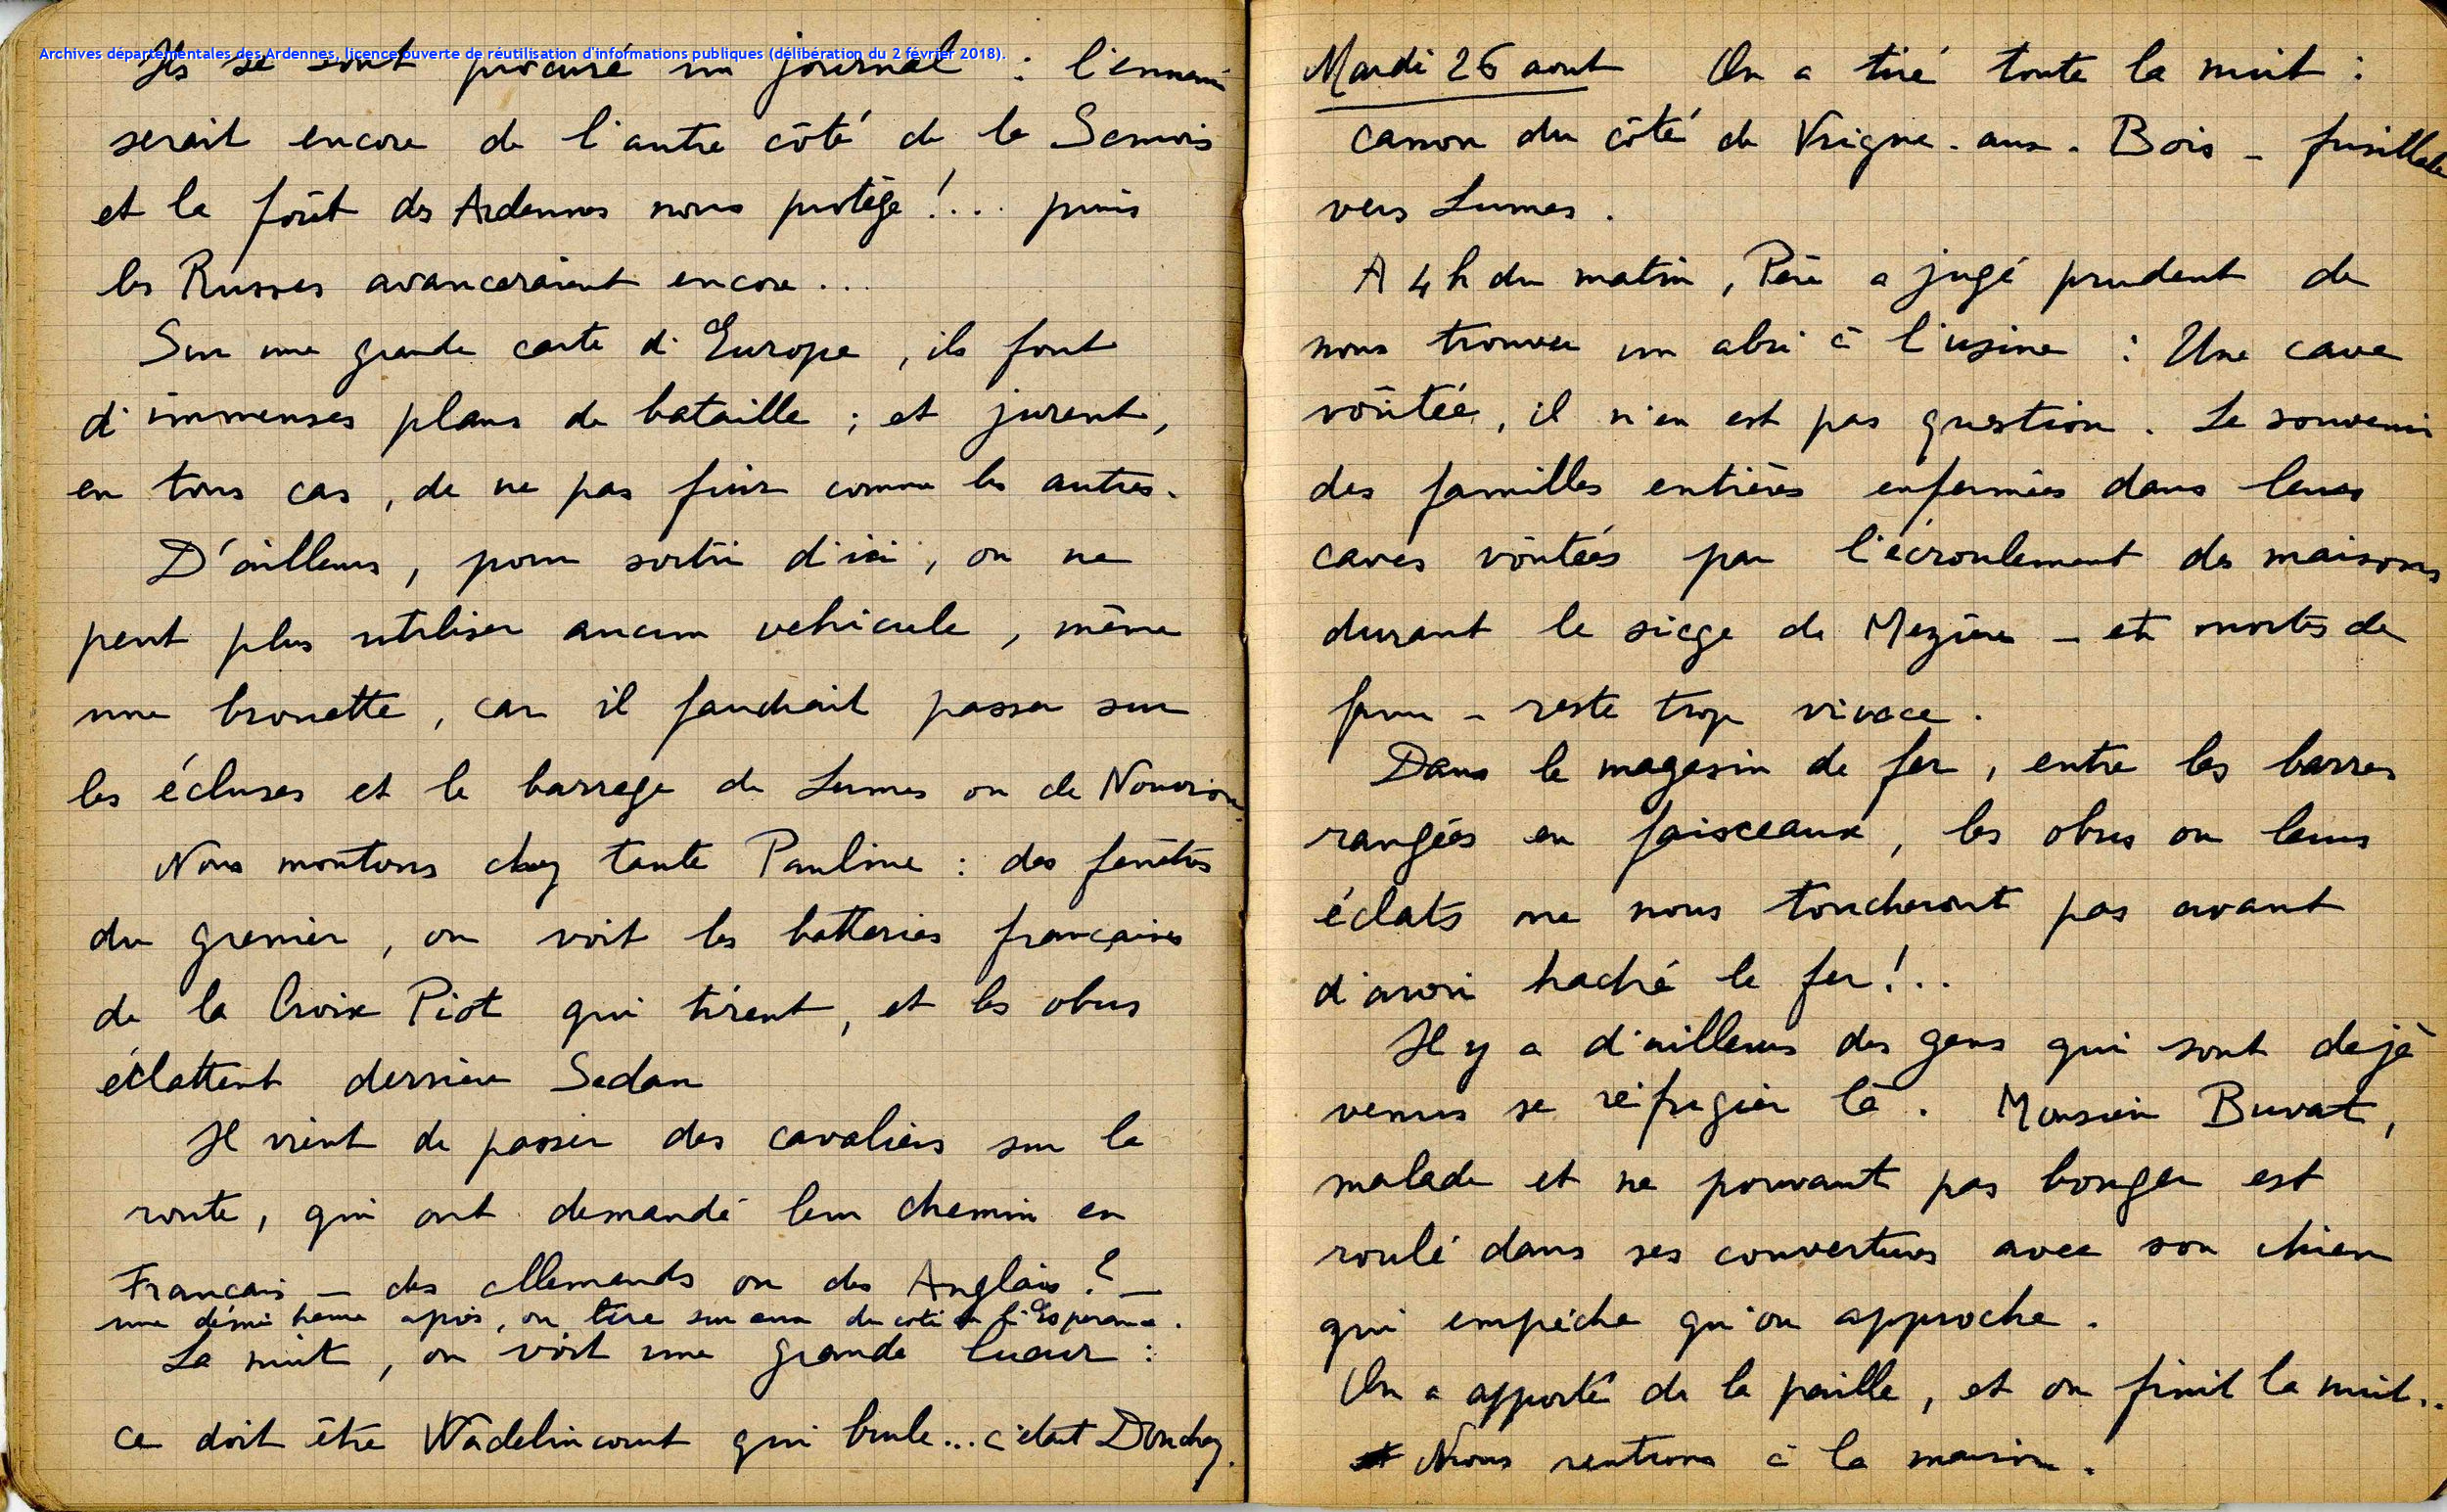 Archives départementales des Ardennes, licence ouverte de réutilisation d'informations publiques (délibération du 2 février 2018).
Ils se sont procuré un journal : l'ennemi
serait encore de l'autre côté de la Semois
et la forêt des Ardennes nous protège !... puis
les Russes avanceraient encore...
Sur une grande carte d'Europe, ils font
d'immenses plans de bataille ; et jurent,
en tous cas, de ne pas finir comme les autres.
D'ailleurs, pour sortir d'ici, on ne
peut plus utiliser aucun vehicule, même
une brouette, car il faudrait passer sur
les écluses et le barrage de Lumes ou de Nouvion
Nous montons chez tante Pauline : des fenêtres
du grenier, on voit les batteries françaises
de la Croix Piot qui tirent, et les obus
éclattent derrière Sedan
Il vient de passer des cavaliers sur la
route, qui ont demandé leur chemin en
Français – des Allemands ou des Anglais ? –
une démi heure après, on tire sur eux du coté de l'Esperance.
La nuit, on voit une grande lueur :
ce doit être Wadelincourt qui brule... c'etait Donchery.
Mardi 26 aout On a tiré toute la nuit :
canon du côté de Vrigne-aux-Bois – fusillade
vers Lumes.
A 4h du matin, Père a jugé prudent de
nous trouver un abri à l'usine : Une cave
voûtée, il n'en est pas question. Le souvenir
des familles entières enfermées dans leurs
caves voûtées par l'écroulement des maisons
durant le siege de Mezières – et mortes de
faim – reste trop vivace.
Dans le magasin de fer, entre les barres
rangées en faisceaux, les obus ou leurs
éclats ne nous toucheront pas avant
d'avoir haché le fer !..
Il y a d'ailleurs des gens qui sont dejà
venus se réfugier là. Monsieur Buvat,
malade et ne pouvant pas bouger est
roulé dans ses couvertures avec son chien
qui empêche qu'on approche.
On a apporté de la paille, et on finit la nuit..
Nous rentrons à la maison.